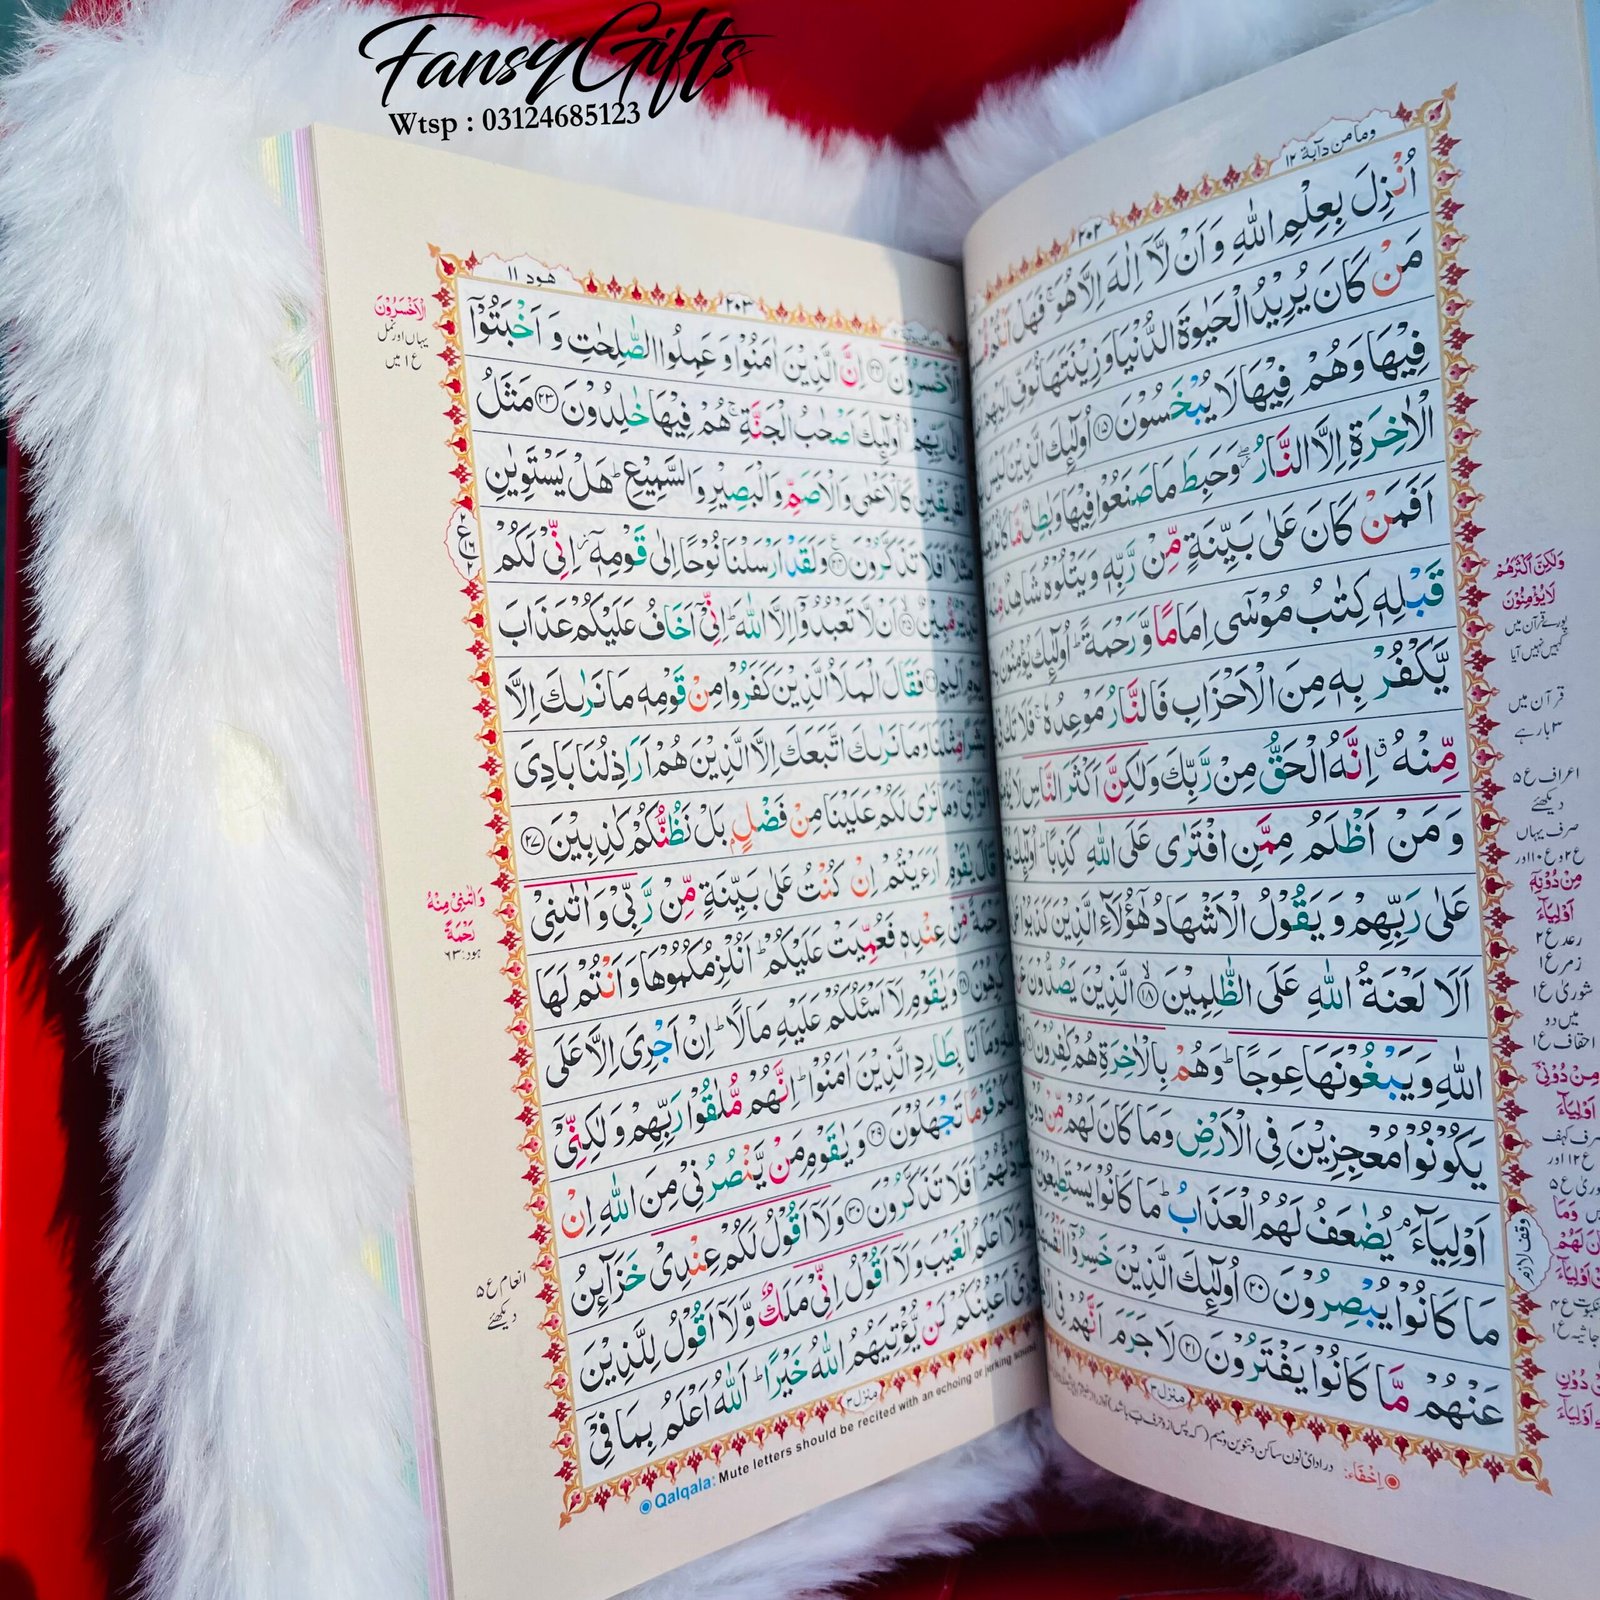 Fansy Gifts
Wtsp : 03124685123
وما من دآبة ١٢
٢٠٢
اُنْزِلَ بِعِلْمِ اللّٰهِ وَاَنْ لَّاۤ اِلٰهَ اِلَّا هُوَ ۚ فَهَلْ اَنْتُمْ
مَنْ كَانَ يُرِيْدُ الْحَيٰوةَ الدُّنْيَا وَزِيْنَتَهَا نُوَفِّ اِلَيْهِمْ
فِيْهَا وَهُمْ فِيْهَا لَا يُبْخَسُوْنَ ١٥ اُولٰٓئِكَ الَّذِيْنَ لَيْسَ
الْاٰخِرَةِ اِلَّا النَّارُ ۖ وَحَبِطَ مَا صَنَعُوْا فِيْهَا وَبٰطِلٌ مَّا
اَفَمَنْ كَانَ عَلٰى بَيِّنَةٍ مِّنْ رَّبِّهٖ وَيَتْلُوْهُ شَاهِدٌ
قَبْلِهٖ كِتٰبُ مُوْسٰٓى اِمَامًا وَّرَحْمَةً ؕ اُولٰٓئِكَ يُؤْمِنُوْنَ
يَّكْفُرْ بِهٖ مِنَ الْاَحْزَابِ فَالنَّارُ مَوْعِدُهٗ ۚ فَلَا تَكُ
مِّنْهُ ۗ اِنَّهُ الْحَقُّ مِنْ رَّبِّكَ وَلٰكِنَّ اَكْثَرَ النَّاسِ
وَمَنْ اَظْلَمُ مِمَّنِ افْتَرٰى عَلَى اللّٰهِ كَذِبًا ؕ اُولٰٓئِكَ
عَلٰى رَبِّهِمْ وَيَقُوْلُ الْاَشْهَادُ هٰٓؤُلَآءِ الَّذِيْنَ كَذَبُوْا
اَلَا لَعْنَةُ اللّٰهِ عَلَى الظّٰلِمِيْنَ ١٨ الَّذِيْنَ يَصُدُّوْنَ
اللّٰهِ وَيَبْغُوْنَهَا عِوَجًا ؕ وَهُمْ بِالْاٰخِرَةِ هُمْ كٰفِرُوْنَ
يَكُوْنُوْا مُعْجِزِيْنَ فِى الْاَرْضِ وَمَا كَانَ لَهُمْ مِّنْ دُوْنِ
اَوْلِيَآءَ ۘ يُضٰعَفُ لَهُمُ الْعَذَابُ ؕ مَا كَانُوْا يَسْتَطِيْعُوْنَ
مَا كَانُوْا يُبْصِرُوْنَ ٢٠ اُولٰٓئِكَ الَّذِيْنَ خَسِرُوْۤا
عَنْهُمْ مَّا كَانُوْا يَفْتَرُوْنَ ٢١ لَا جَرَمَ اَنَّهُمْ فِى
منزل ٣
اِخْفَاء:
وَلٰكِنَّ اَكْثَرَهُمْ
لَا يُؤْمِنُوْنَ
پورے قرآن میں
کہیں نہیں آیا
قرآن میں
٣ بار ہے
اعراف ع ٥
دیکھئے
صرف یہاں
مِنْ دُوْنِهٖ
اَوْلِيَآءَ
رعد ع ٢
زمر ع ١
شورٰی ع ١
میں دو
احقاف ع ١
مِنْ دُوْنِیْ
اَوْلِيَآءَ
وقف لازم
هود ١١
٢٠٣
الْاَخْسَرُوْنَ ٢٢ اِنَّ الَّذِيْنَ اٰمَنُوْا وَعَمِلُوا الصّٰلِحٰتِ وَاَخْبَتُوْۤا
اِلٰى رَبِّهِمْ ۙ اُولٰٓئِكَ اَصْحٰبُ الْجَنَّةِ ۚ هُمْ فِيْهَا خٰلِدُوْنَ ٢٣ مَثَلُ
الْفَرِيْقَيْنِ كَالْاَعْمٰى وَالْاَصَمِّ وَالْبَصِيْرِ وَالسَّمِيْعِ ؕ هَلْ يَسْتَوِيٰنِ
مَثَلًا ؕ اَفَلَا تَذَكَّرُوْنَ ٢٤ وَلَقَدْ اَرْسَلْنَا نُوْحًا اِلٰى قَوْمِهٖۤ اِنِّىْ لَكُمْ
نَذِيْرٌ مُّبِيْنٌ ٢٥ اَنْ لَّا تَعْبُدُوْۤا اِلَّا اللّٰهَ ؕ اِنِّىْۤ اَخَافُ عَلَيْكُمْ عَذَابَ
يَوْمٍ اَلِيْمٍ ٢٦ فَقَالَ الْمَلَاُ الَّذِيْنَ كَفَرُوْا مِنْ قَوْمِهٖ مَا نَرٰىكَ اِلَّا
بَشَرًا مِّثْلَنَا وَمَا نَرٰىكَ اتَّبَعَكَ اِلَّا الَّذِيْنَ هُمْ اَرَاذِلُنَا بَادِىَ
الرَّاْىِ ۚ وَمَا نَرٰى لَكُمْ عَلَيْنَا مِنْ فَضْلٍۢ بَلْ نَظُنُّكُمْ كٰذِبِيْنَ ٢٧
قَالَ يٰقَوْمِ اَرَءَيْتُمْ اِنْ كُنْتُ عَلٰى بَيِّنَةٍ مِّنْ رَّبِّىْ وَاٰتٰىنِىْ
رَحْمَةً مِّنْ عِنْدِهٖ فَعُمِّيَتْ عَلَيْكُمْ ؕ اَنُلْزِمُكُمُوْهَا وَاَنْتُمْ لَهَا
كٰرِهُوْنَ ٢٨ وَيٰقَوْمِ لَاۤ اَسْـَٔلُكُمْ عَلَيْهِ مَالًا ؕ اِنْ اَجْرِىَ اِلَّا عَلَى
اللّٰهِ وَمَاۤ اَنَا بِطَارِدِ الَّذِيْنَ اٰمَنُوْا ؕ اِنَّهُمْ مُّلٰقُوْا رَبِّهِمْ وَلٰكِنِّىْۤ
اَرٰىكُمْ قَوْمًا تَجْهَلُوْنَ ٢٩ وَيٰقَوْمِ مَنْ يَّنْصُرُنِىْ مِنَ اللّٰهِ اِنْ
طَرَدْتُّهُمْ ؕ اَفَلَا تَذَكَّرُوْنَ ٣٠ وَلَاۤ اَقُوْلُ لَكُمْ عِنْدِىْ خَزَآئِنُ
اللّٰهِ وَلَاۤ اَعْلَمُ الْغَيْبَ وَلَاۤ اَقُوْلُ اِنِّىْ مَلَكٌ وَّلَاۤ اَقُوْلُ لِلَّذِيْنَ
تَزْدَرِىْۤ اَعْيُنُكُمْ لَنْ يُّؤْتِيَهُمُ اللّٰهُ خَيْرًا ؕ اَللّٰهُ اَعْلَمُ بِمَا فِىْۤ
منزل ٣
Qalqala: Mute letters should be recited with an echoing or jerking sound
الْاَخْسَرُوْنَ
یہاں اور نمل
ع ١ میں
وَاٰتٰىنِىْ مِنْهُ
رَحْمَةً
ہود: ٦٣
انعام ع ٥
دیکھئے